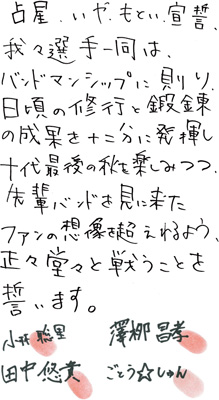 占星.いや.もとい.宣誓.
我々選手一同は、
バンドマンシップに則り、
日頃の修行と鍛錬
の成果を十二分に発揮し
十代最後の秋を楽しみつつ、
先輩バンドを見に来た
ファンの想像を超えれるよう、
正々堂々と戦うことを
誓います。
小林聡里 澤柳昌孝
田中悠貴 ごとう☆しゅん